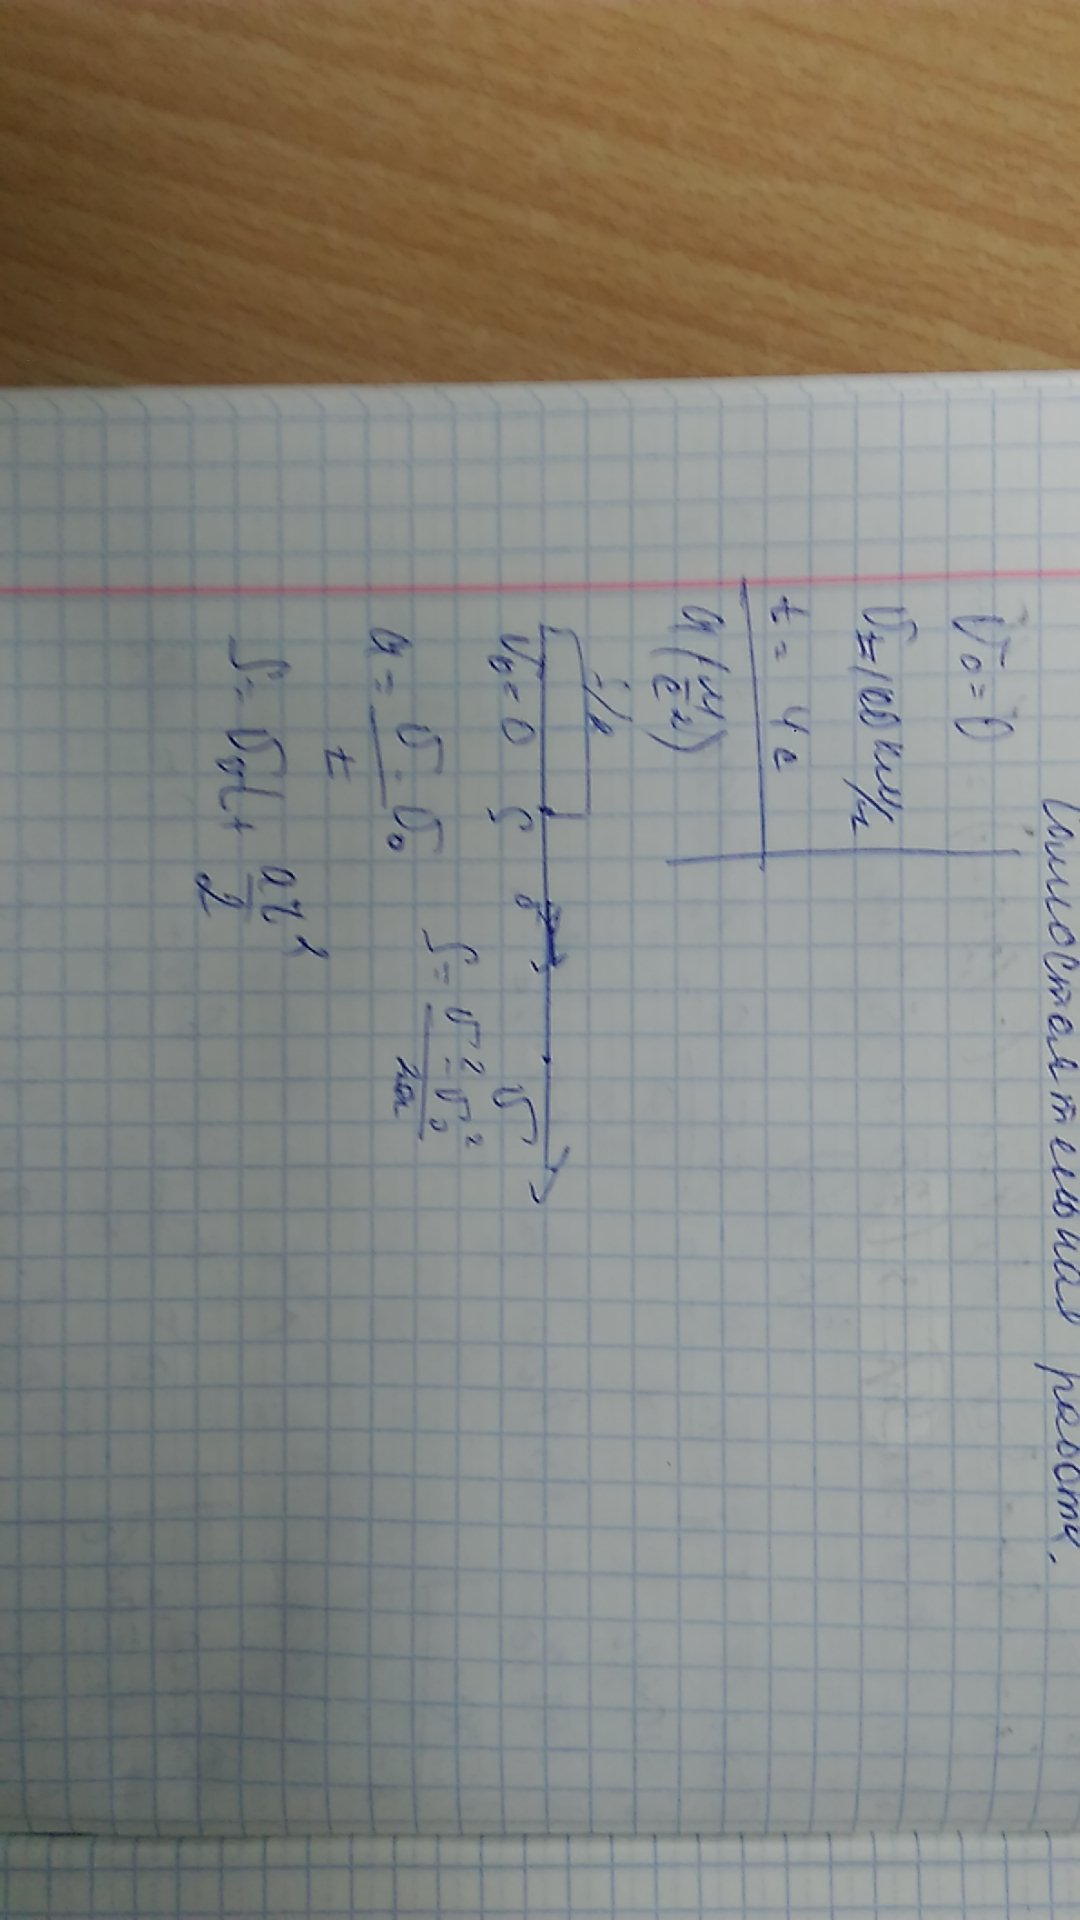 Самостоятельная работа.
V₀ = 0
V = 100 км/ч
t = 4 с
a (м/с²)
V₀ = 0 S V
a = (V - V₀)/t
S = (V² - V₀²)/2a
S = V₀t + at²/2